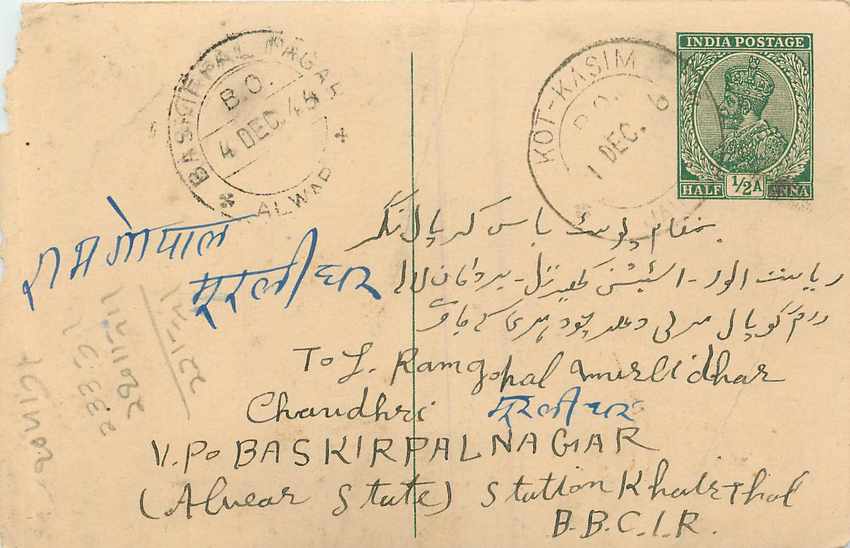 BASKIRPAL NAGAR
B.O.
4 DEC. 45
ALWAR
KOT-KASIM
B.O.
1 DEC.
INDIA POSTAGE
HALF ½A ANNA
بمقام پوسٹ باس کرپال نگر
ریاست الور - اسٹیشن کھیرتل
رام گوپال مرلی دھر چودہری
रामगोपाल
मूरलीधर
To L. Ramgopal Murlidhar
Chaudhri मूरलीधर
V. Po BASKIRPALNAGAR
(Alwar State) Station Khairthal
B.B.C.I.R.